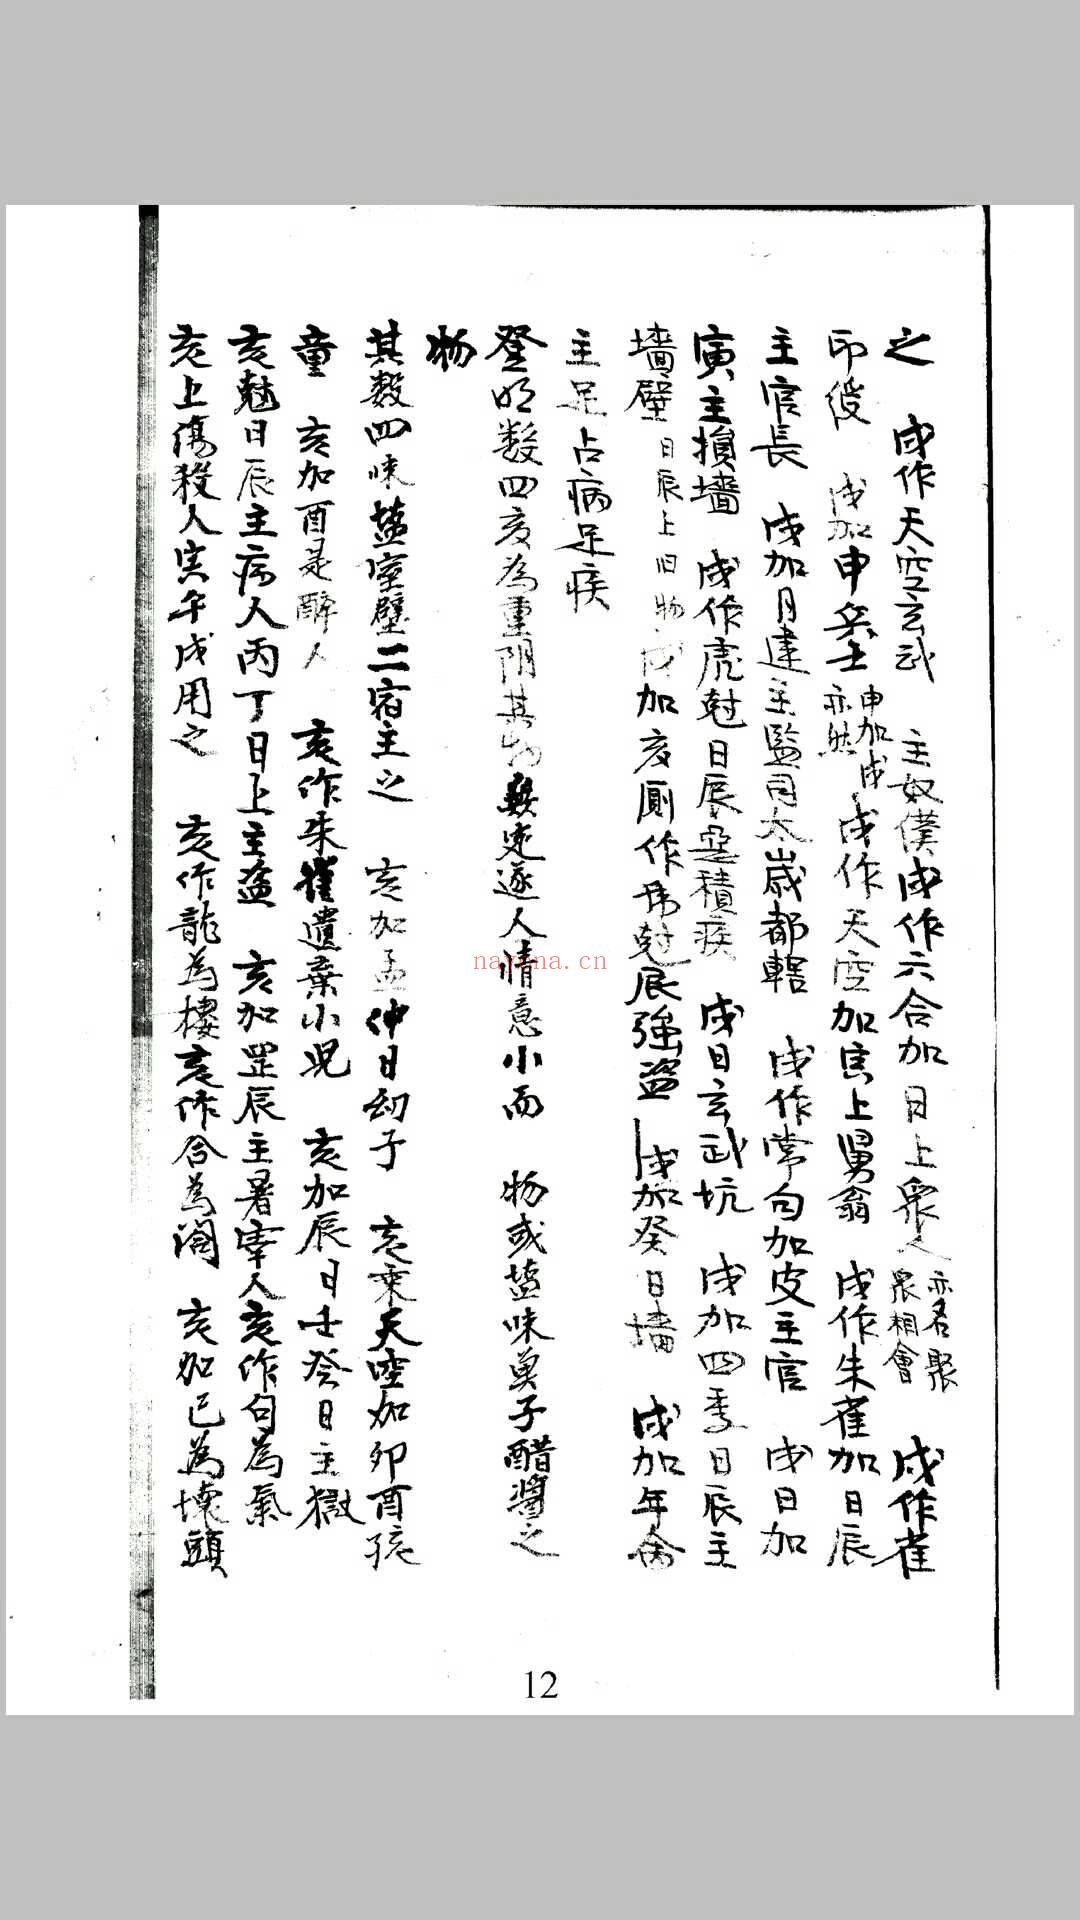 之 戌作天空玄武 主奴僕戌作六合加日上眾人亦名聚眾相會 戌作雀
印綬 戌加申兵士申加戌亦然 戌作天空加寅上舅翁 戌作朱雀加日辰
主官長 戌加月建主監司太歲都轄 戌作常勾加皮主官 戌日加
寅主損墻 戌作虎尅日辰是積疾 戌日玄武坑 戌加四季日辰主
墻壁日辰上旧物 戌加亥廁作尅辰強盜 戌加癸日墻 戌加年命
主足占病足疾
登明数四亥為重阴其物 遂人情意小而 物或塩味 子醋醬之
物
其数四味塩室壁二宿主之 亥加孟仲日幼子 亥乘天空加卯酉孩
童 亥加酉是醉人 亥作朱雀遺棄小児 亥加辰日壬癸日主獄
亥魁日辰主病人丙丁日上主盗 亥加罡辰主暑 人亥作勾為氣
亥上傷殺人寅午戌用之 亥作龍為樓亥作合為阁 亥加巳為壞頭
nayona.cn
12